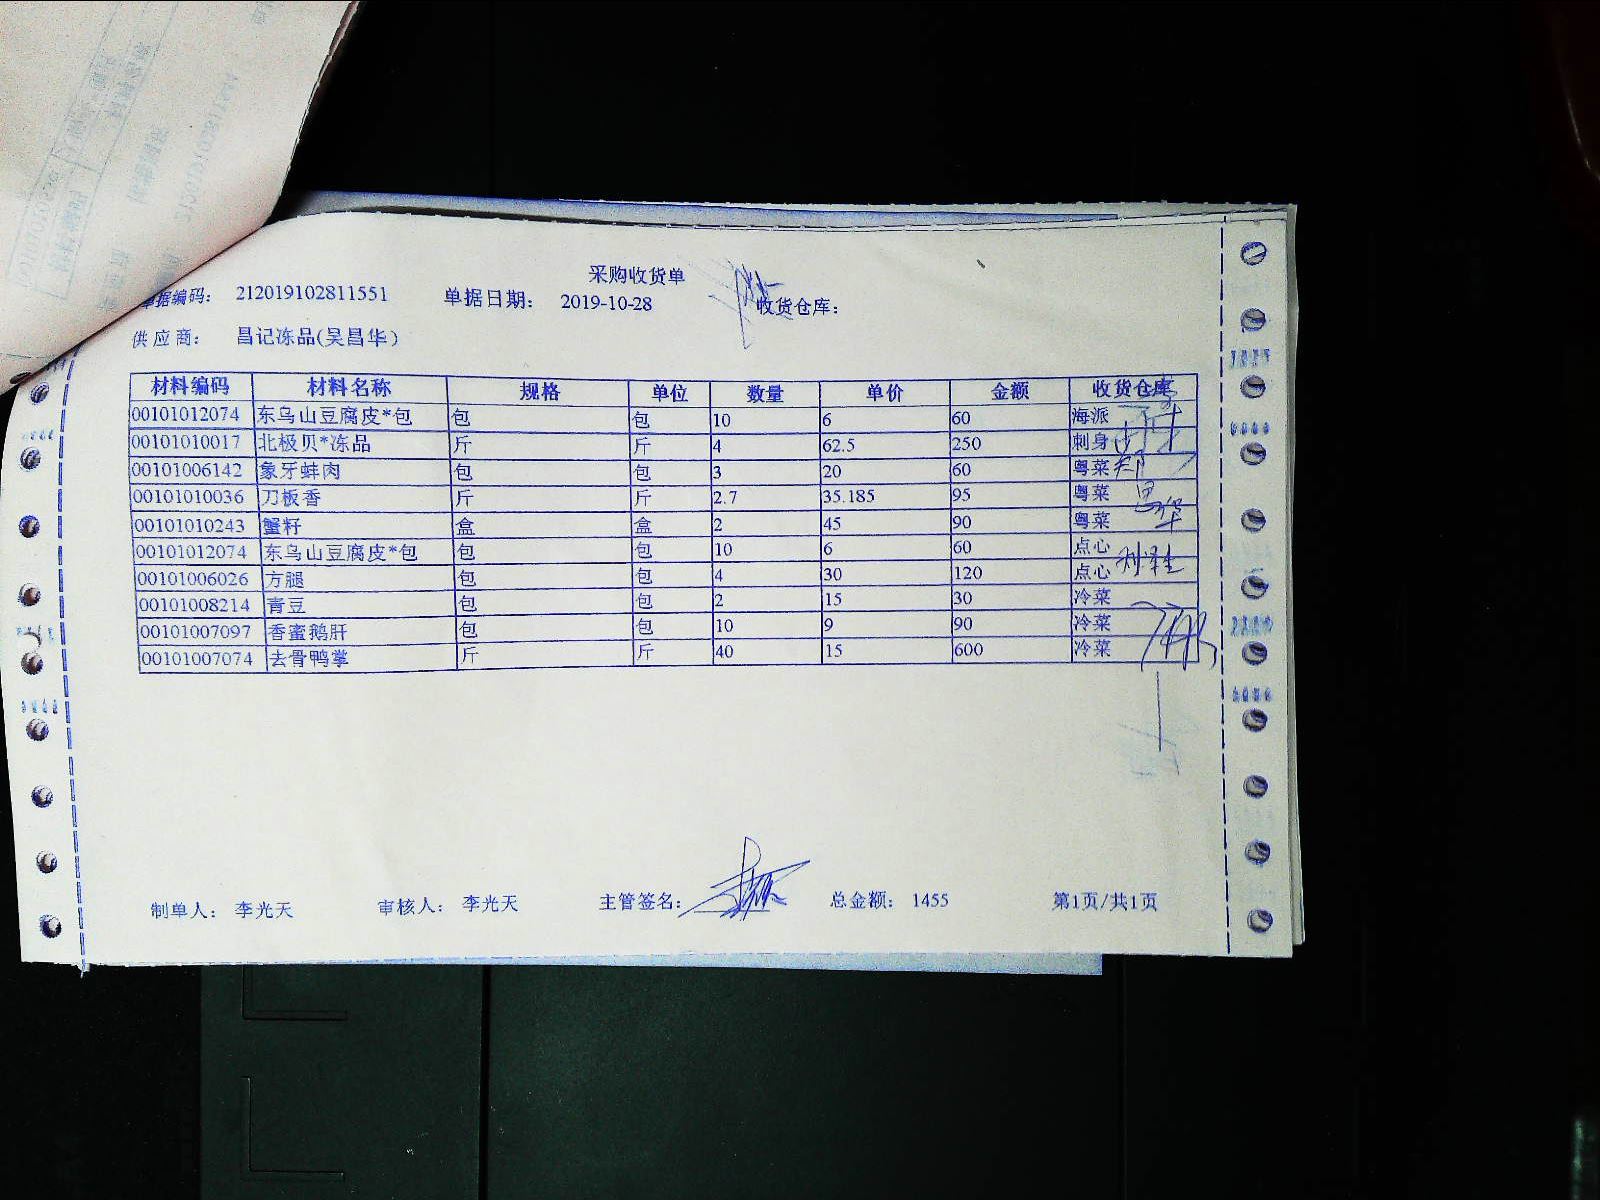 采购收货单
单据编码： 212019102811551 单据日期： 2019-10-28 收货仓库：
供应商： 昌记冻品(吴昌华)
材料编码 材料名称 规格 单位 数量 单价 金额 收货仓库
00101012074 东乌山豆腐皮*包 包 包 10 6 60 海派
00101010017 北极贝*冻品 斤 斤 4 62.5 250 刺身
00101006142 象牙蚌肉 包 包 3 20 60 粤菜
00101010036 刀板香 斤 斤 2.7 35.185 95 粤菜
00101010243 蟹籽 盒 盒 2 45 90 粤菜
00101012074 东乌山豆腐皮*包 包 包 10 6 60 点心
00101006026 方腿 包 包 4 30 120 点心
00101008214 青豆 包 包 2 15 30 冷菜
00101007097 香蜜鹅肝 包 包 10 9 90 冷菜
00101007074 去骨鸭掌 斤 斤 40 15 600 冷菜
制单人： 李光天 审核人： 李光天 主管签名： 总金额： 1455 第1页/共1页